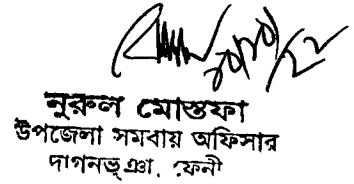 ২০/১০/২২
নুরুল মোস্তফা
উপজেলা সমবায় অফিসার
দাগনভূঞা, ফেনী